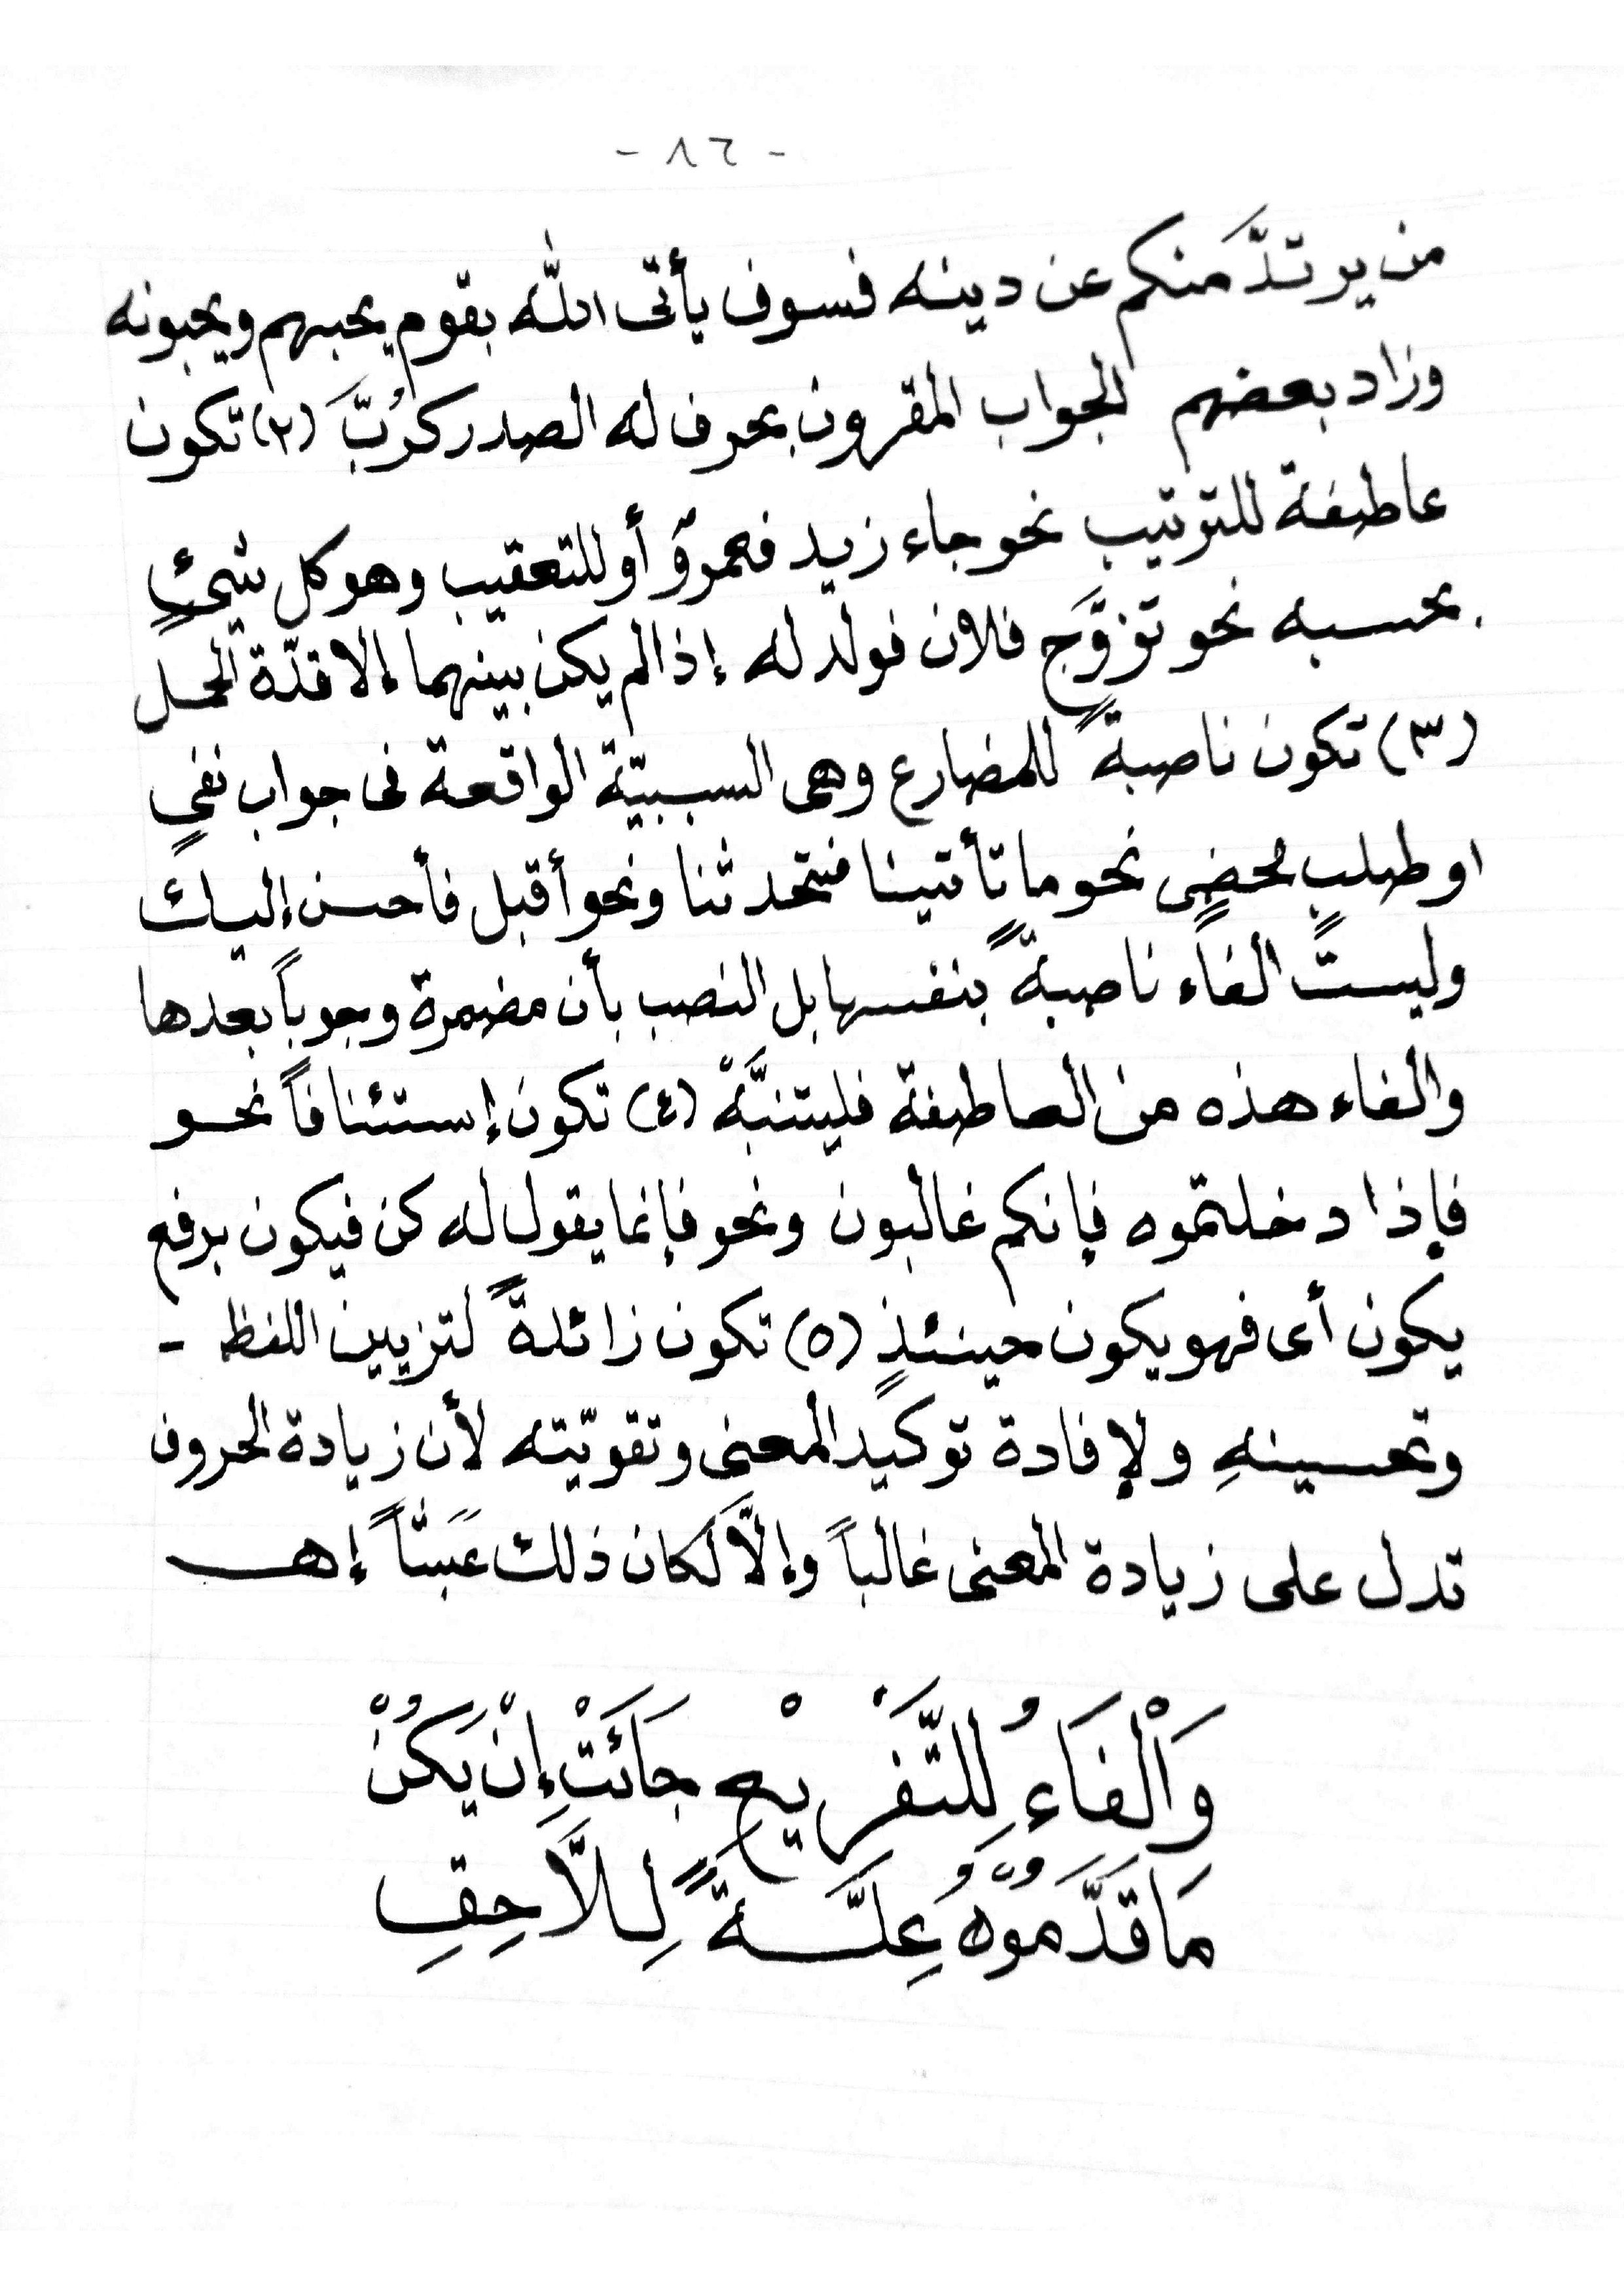 - ٨٦ -
من يرتدَّ منكم عن دينه فسوف يأتى الله بقوم يحبهم ويحبونه
وزاد بعضهم الجواب المقرون بحرف له الصدر كرُبَّ (٢) تكون
عاطفة للترتيب نحو جاء زيد فعمروٌ أو للتعقيب وهو كل شيئٍ
بحسبه نحو تزوَّج فلان فولد له إذا لم يكن بينهما إلا قدّة الحمل
(٣) تكون ناصبةً للمضارع وهى السببيّة الواقعة فى جواب نفيٍ
او طلبٍ محضٍ نحو ما تأتينا فتحدثنا ونحو أقبل فأحسن إليك
وليست الفاء ناصبةً بنفسها بل النصب بأن مضمرة وجوباً بعدها
والفاء هذه من العاطفة فليتنبَّهْ (٤) تكون إستئنافاً نحو
فإذا دخلتموه فإنكم غالبون ونحو فإنما يقول له كن فيكون برفع
يكون أى فهو يكون حينئذٍ (٥) تكون زائدةً لتزيين اللفظ -
وتحسينهِ ولإفادة توكيد المعنى وتقويّته لأن زيادة الحروف
تدل على زيادة المعنى غالباً وإلاَّ لكان ذلك عَبَثاً إهـ
وَالْفَاءُ لِلتَّفْرِيْعِ جَائَتْ إِنْ يَكُنْ
مَا قَدَّمُوْهُ عِلَّةً لِلاَّحِقِ